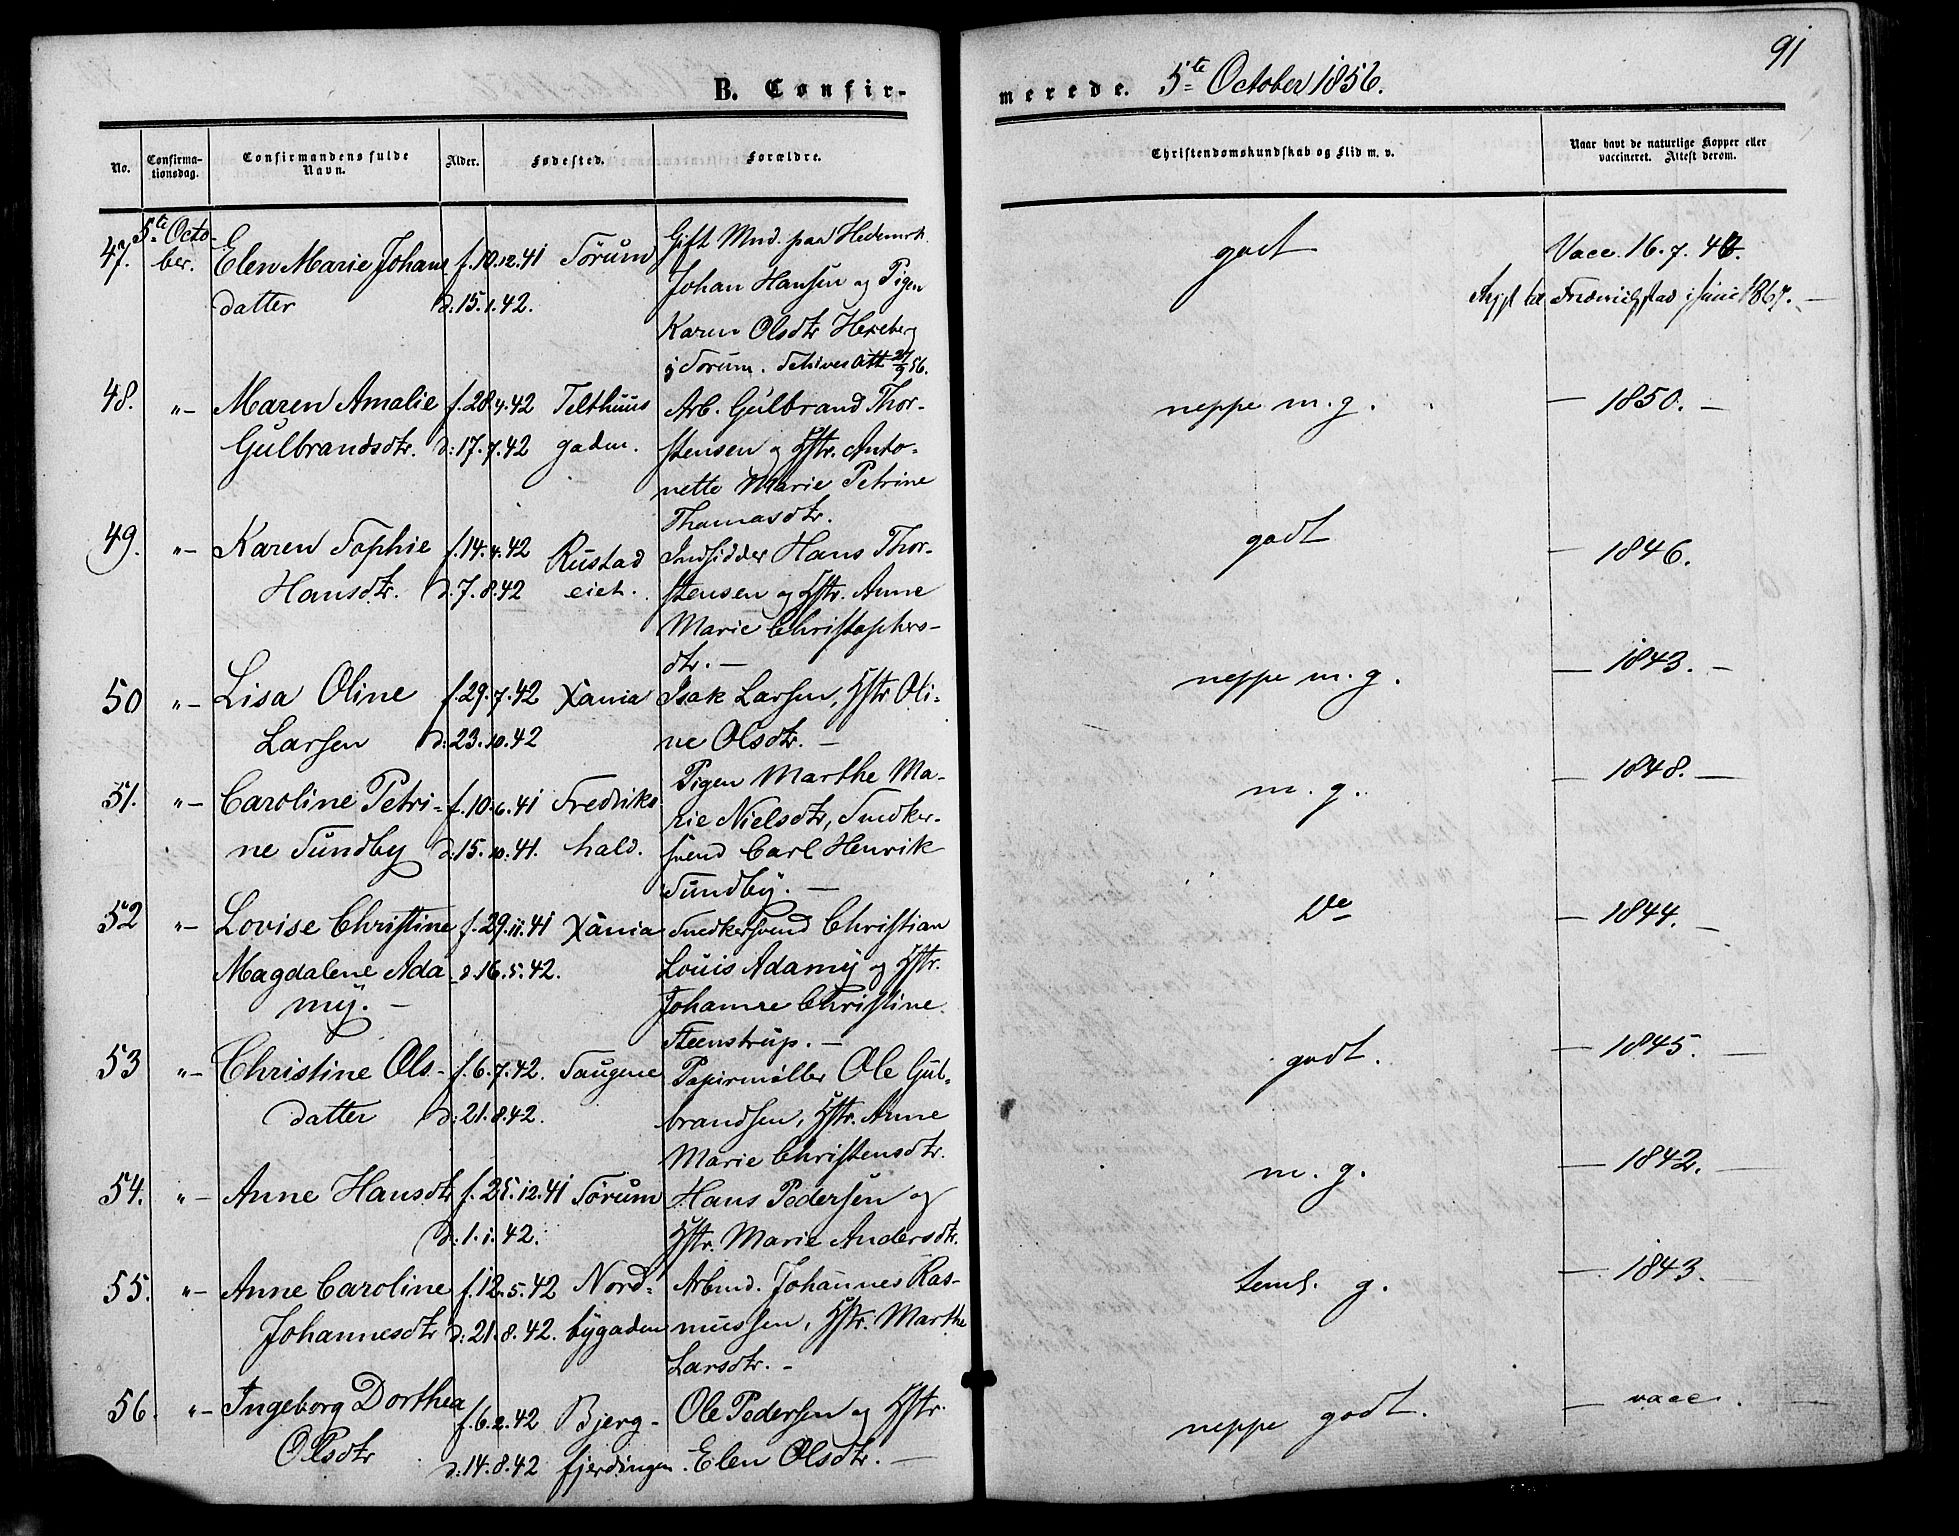 91
B. Confirmerede. 5te October 1856.
No. Confirmationsdag. Confirmandens fulde Navn. Alder. Fødested. Forældre. Christendomskundskab og Flid m. v. Naar havt de naturlige Kopper eller vaccineret. Attest derom.
47. 5te October. Elen Marie Johans- f. 10.12.41 Sørum Gift Mnd. paa Hedemrk. godt Vacc. 16.7.42.
datter d: 15.1.42. Johan Hansen og Pigen
Karen Olsdtr
i Sørum. Attt 56.
48. "- Maren Amalie f. 28.4.42 Telthuus Arb. Gulbrand Thor- neppe m. g. — 1850. —
Gulbrandsdtr. d: 17.7.42 gaden. stensen og Hstr. Anto-
nette Marie Petrine
Thomasdtr.
49. "- Karen Sophie f. 14.4.42 Rustad Indsidder Hans Thor- godt — 1846.
Hansdtr. d. 7.8.42 eiet. stensen og Hstr. Anne
Marie Christophers-
dtr. —
50 "- Lisa Oline f. 29.7.42 Xania Isak Larsen, Hstr Oli- neppe m. g. — 1843. —
Larsen d: 23.10.42 ne Olsdtr. —
51. "- Caroline Petri- f. 10.6.41 Fredriks Pigen Marthe Ma- m. g. — 1848. —
ne Sundby d: 15.10.41. hald. rie Nielsdtr, Snedker-
svend Carl Henrik
Sundby. —
52 "- Lovise Christine f. 29.11.41 Xania Snedkersvend Christian Do — 1844. —
Magdalene Ada- d. 16.5.42. Louis Adamy og Hstr.
my. — Johanne Christine
Steenstrup. —
53 "- Christine Ols- f. 6.7.42. Saugene Papirmøller Ole Gul- godt. — 1845. —
datter d: 21.8.42. brandsen, Hstr. Anne
Marie Christensdtr.
54. "- Anne Hansdtr f. 25.12.41 Sørum Hans Pedersen og m. g. — 1842. —
d: 1.1.42. Hstr. Marie Andersdtr.
55. "- Anne Caroline f. 12.5.42 Nord- Arbmd. Johannes Ras- teml. g. — 1843. —
Johannesdtr d: 21.8.42. bygaden mussen, Hstr. Marthe
Larsdtr. -
56. "- Ingeborg Dorthea f. 6.2.42 Bjerg- Ole Pedersen og Hstr. neppe godt. — vacc. —
Olsdtr d: 14.8.42 fjerdingen. Elen Olsdtr. —